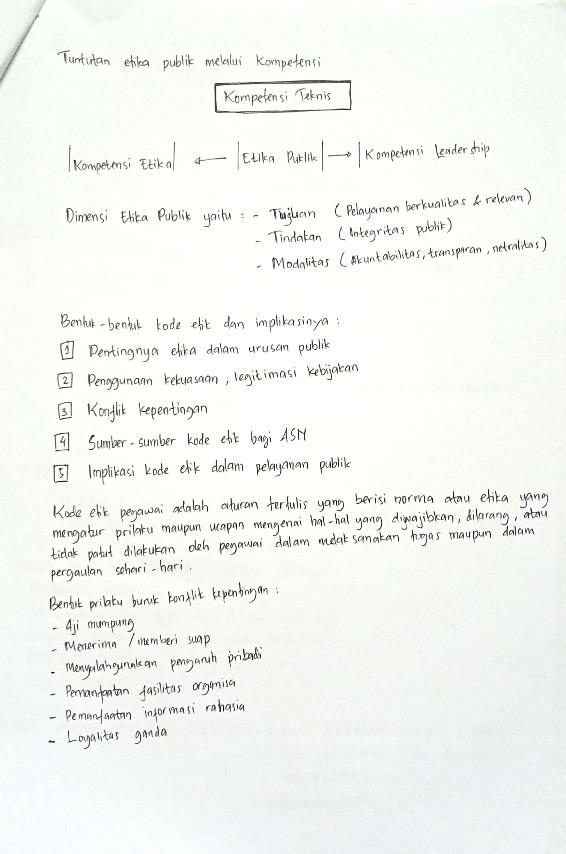 Tuntutan etika publik melalui Kompetensi
Kompetensi Teknis
|Kompetensi Etika| ← |Etika Publik| → |Kompetensi leadership
Dimensi Etika Publik yaitu : - Tujuan (Pelayanan berkualitas & relevan)
- Tindakan (Integritas publik)
- Modalitas (Akuntabilitas, transparan, netralitas)
Bentuk-bentuk kode etik dan implikasinya :
1 Pentingnya etika dalam urusan publik
2 Penggunaan kekuasaan ; legitimasi kebijakan
3 Konflik kepentingan
4 Sumber-sumber kode etik bagi ASN
5 Implikasi kode etik dalam pelayanan publik
Kode etik pegawai adalah aturan tertulis yang berisi norma atau etika yang
mengatur prilaku maupun ucapan mengenai hal-hal yang diwajibkan, dilarang, atau
tidak patut dilakukan oleh pegawai dalam melaksanakan tugas maupun dalam
pergaulan sehari-hari.
Bentuk prilaku buruk konflik kepentingan :
- Aji mumpung
- Menerima / memberi suap
- Menyalahgunakan pengaruh pribadi
- Pemanfaatan fasilitas organisa
- Pemanfaatan informasi rahasia
- Loyalitas ganda